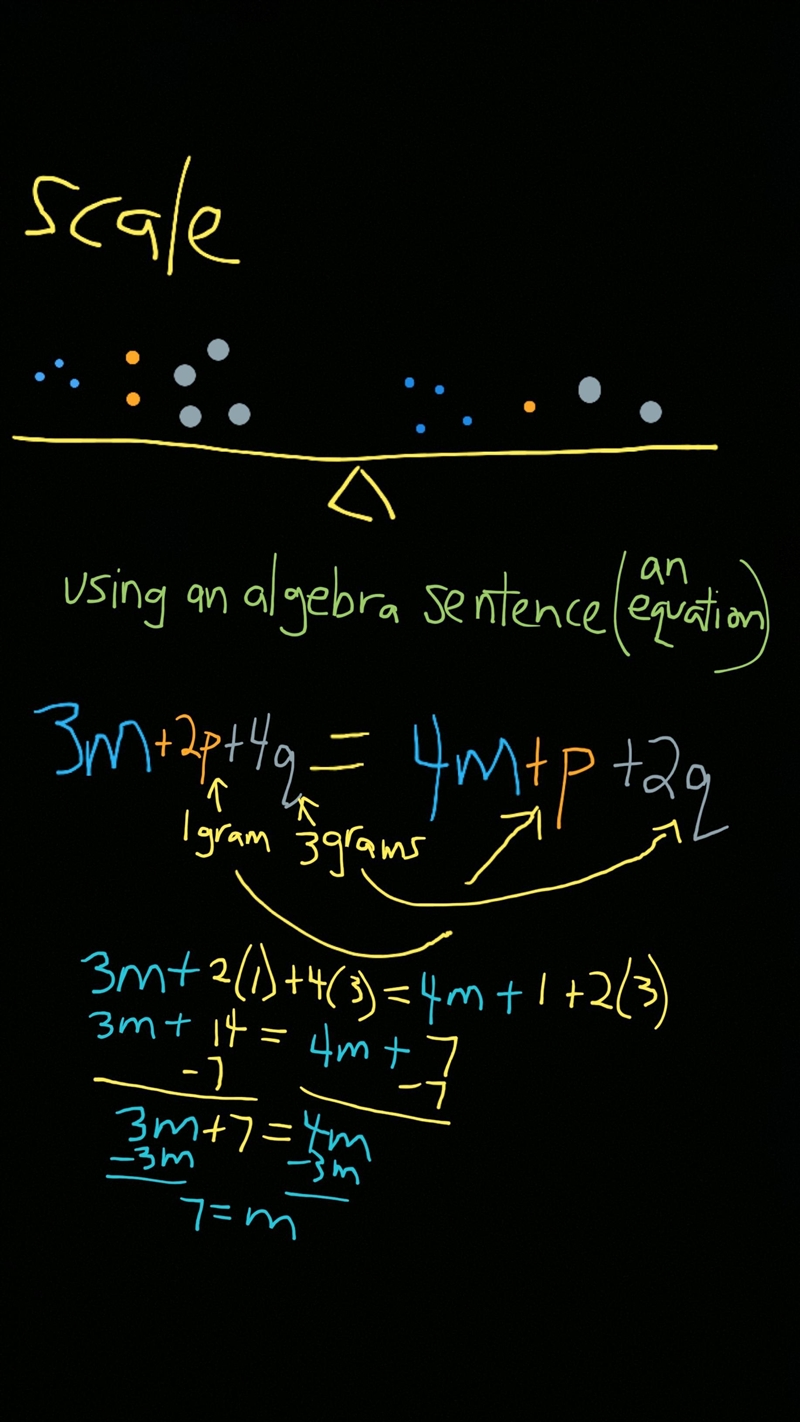 scale
using an algebra sentence (an equation)
3m+2p+4q = 4m+p+2q
1gram 3grams
3m+2(1)+4(3)=4m+1+2(3)
3m+14=4m+7
-7 -7
3m+7=4m
-3m -3m
7=m